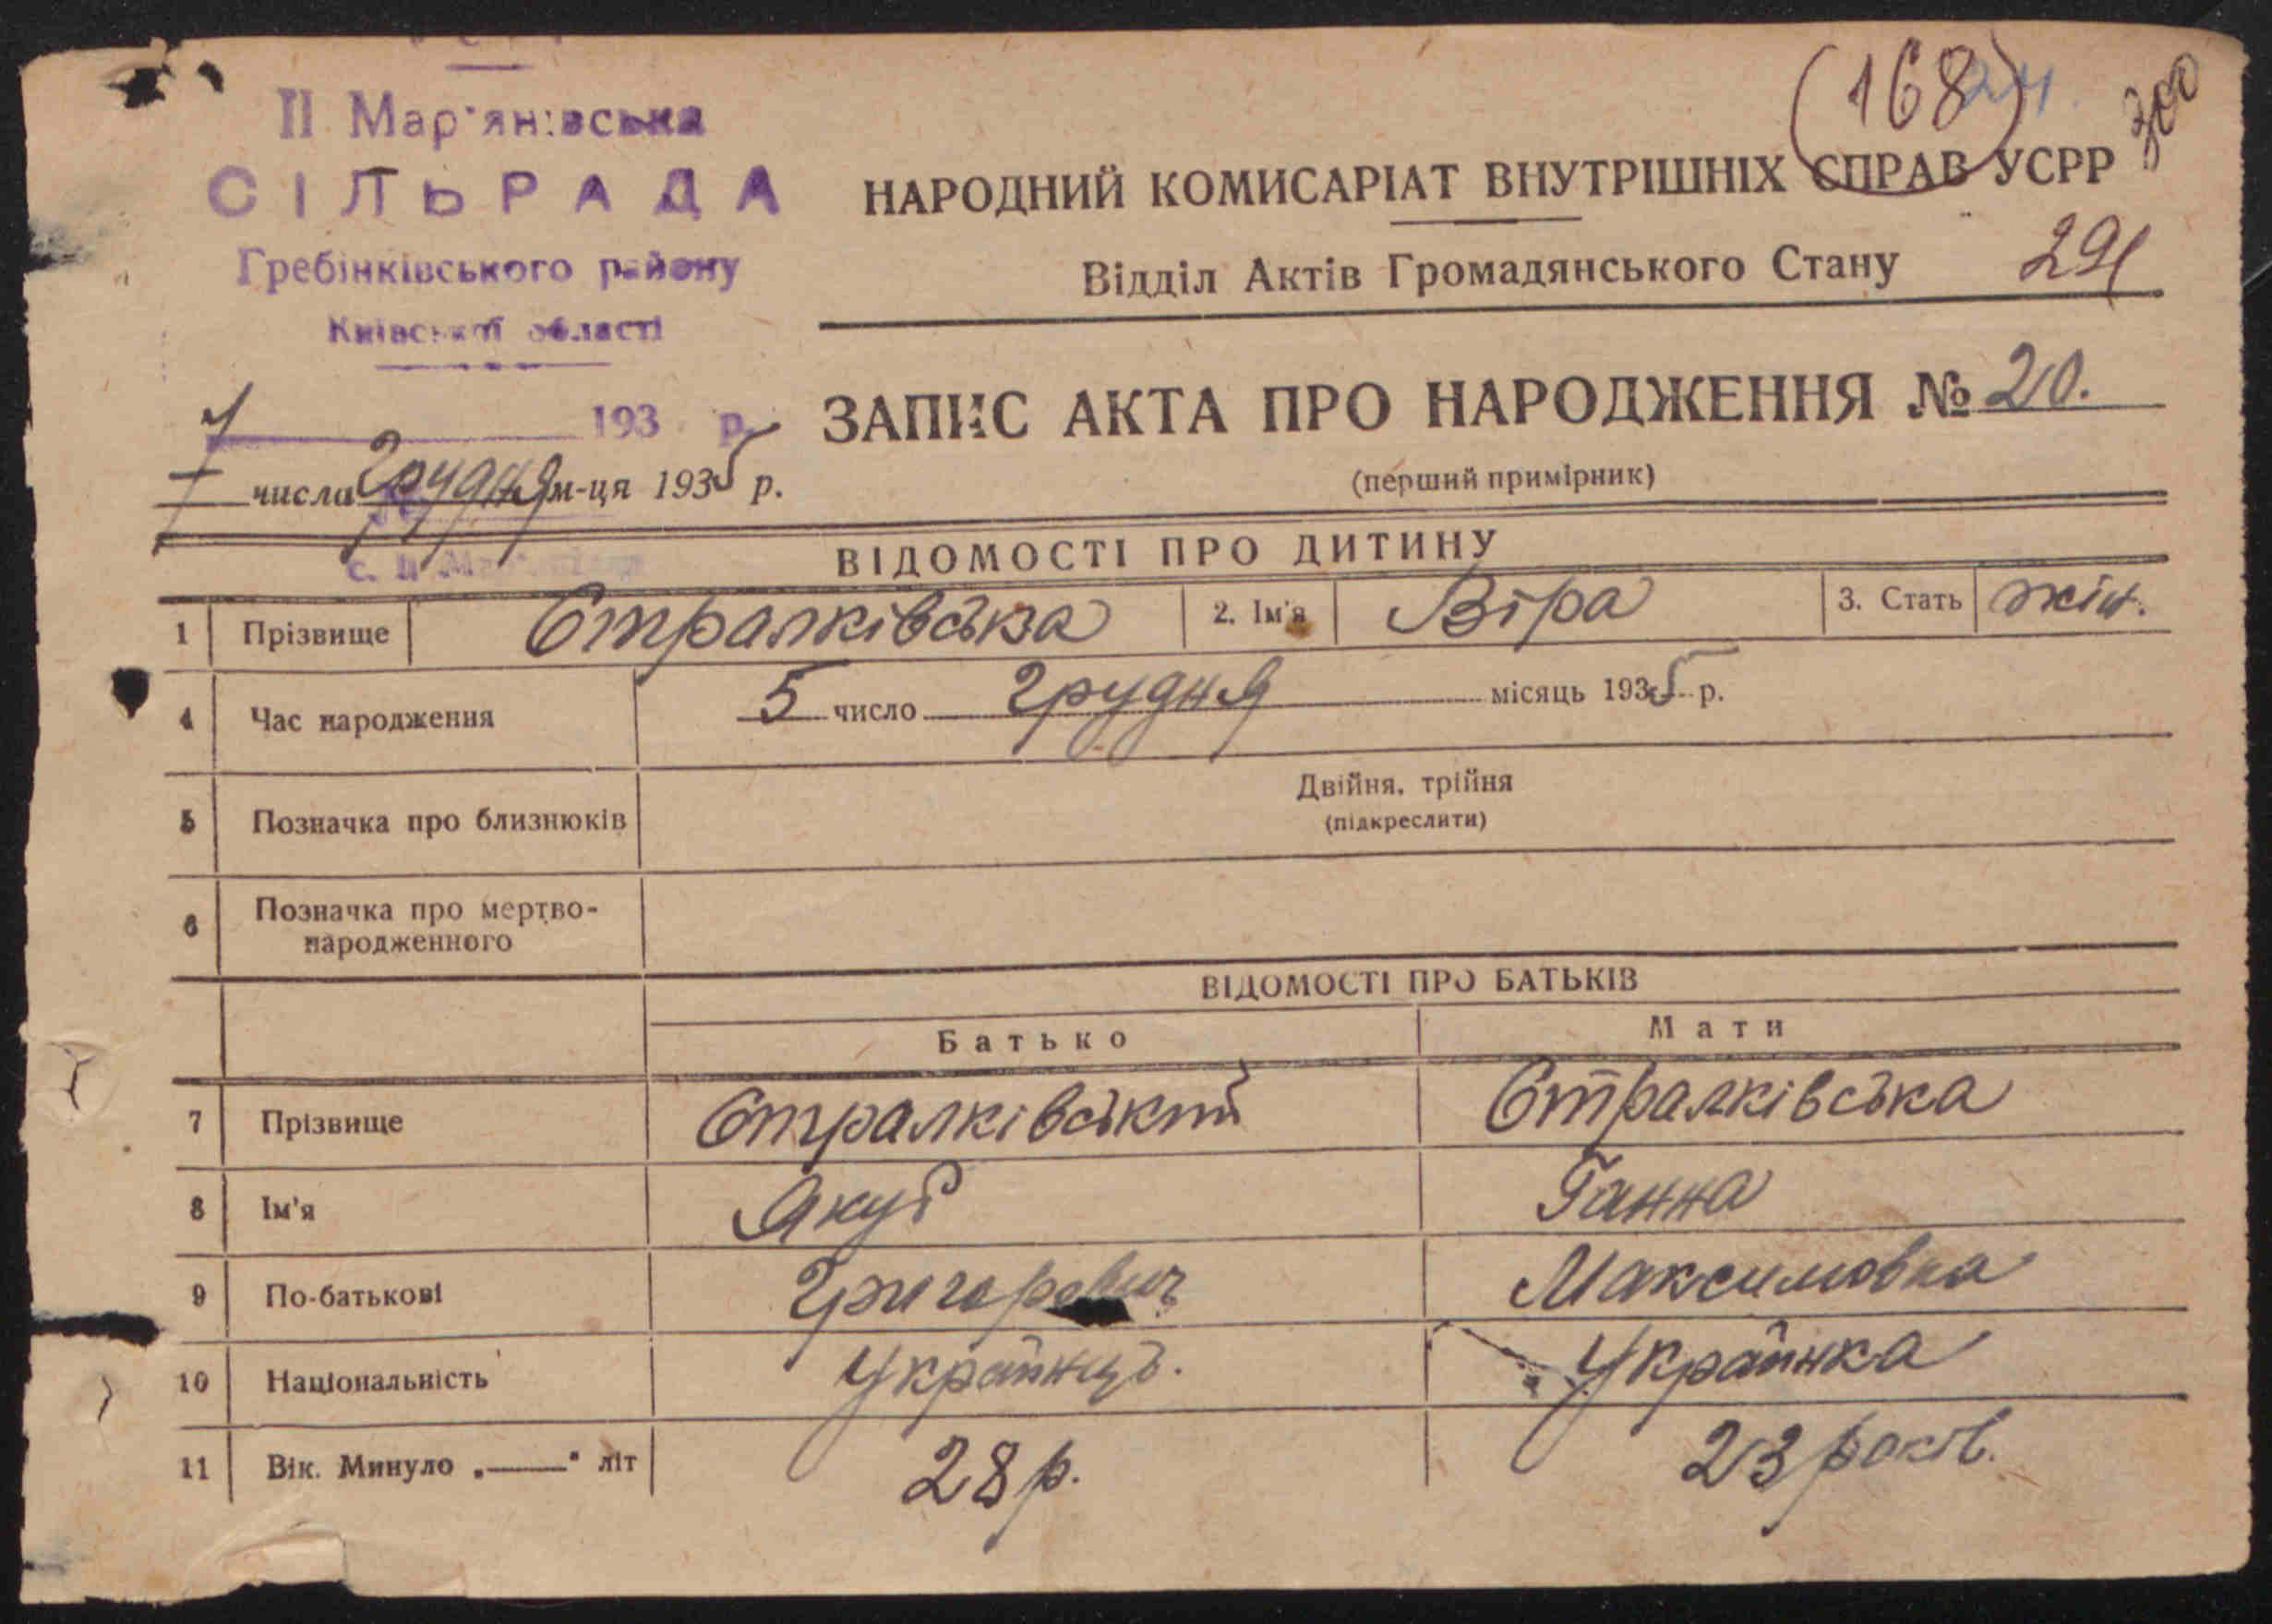 II Мар'янівська
СІЛЬРАДА
Гребінківського району
Київської області
7 193 р.
(168)
300
НАРОДНИЙ КОМИСАРІАТ ВНУТРІШНІХ СПРАВ УСРР
Відділ Актів Громадянського Стану 291
ЗАПИС АКТА ПРО НАРОДЖЕННЯ № 20.
(перший примірник)
7 числа Грудня м-ця 1935 р.
ВІДОМОСТІ ПРО ДИТИНУ
1 Прізвище Стралківська 2. Ім'я Віра 3. Стать жін.
4 Час народження 5 число грудня місяць 1935 р.
Двійня, трійня
5 Позначка про близнюків (підкреслити)
6 Позначка про мертво-
народженного
ВІДОМОСТІ ПРО БАТЬКІВ
Батько Мати
7 Прізвище Стралківський Стралківська
8 Ім'я Якуб Ганна
9 По-батькові Григорович Максимовна
10 Національність Українець. Українка
11 Вік. Минуло „——" літ 28 р. 23 років.